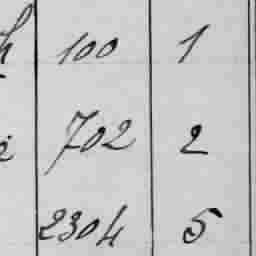 100 1
702 2
2304 5